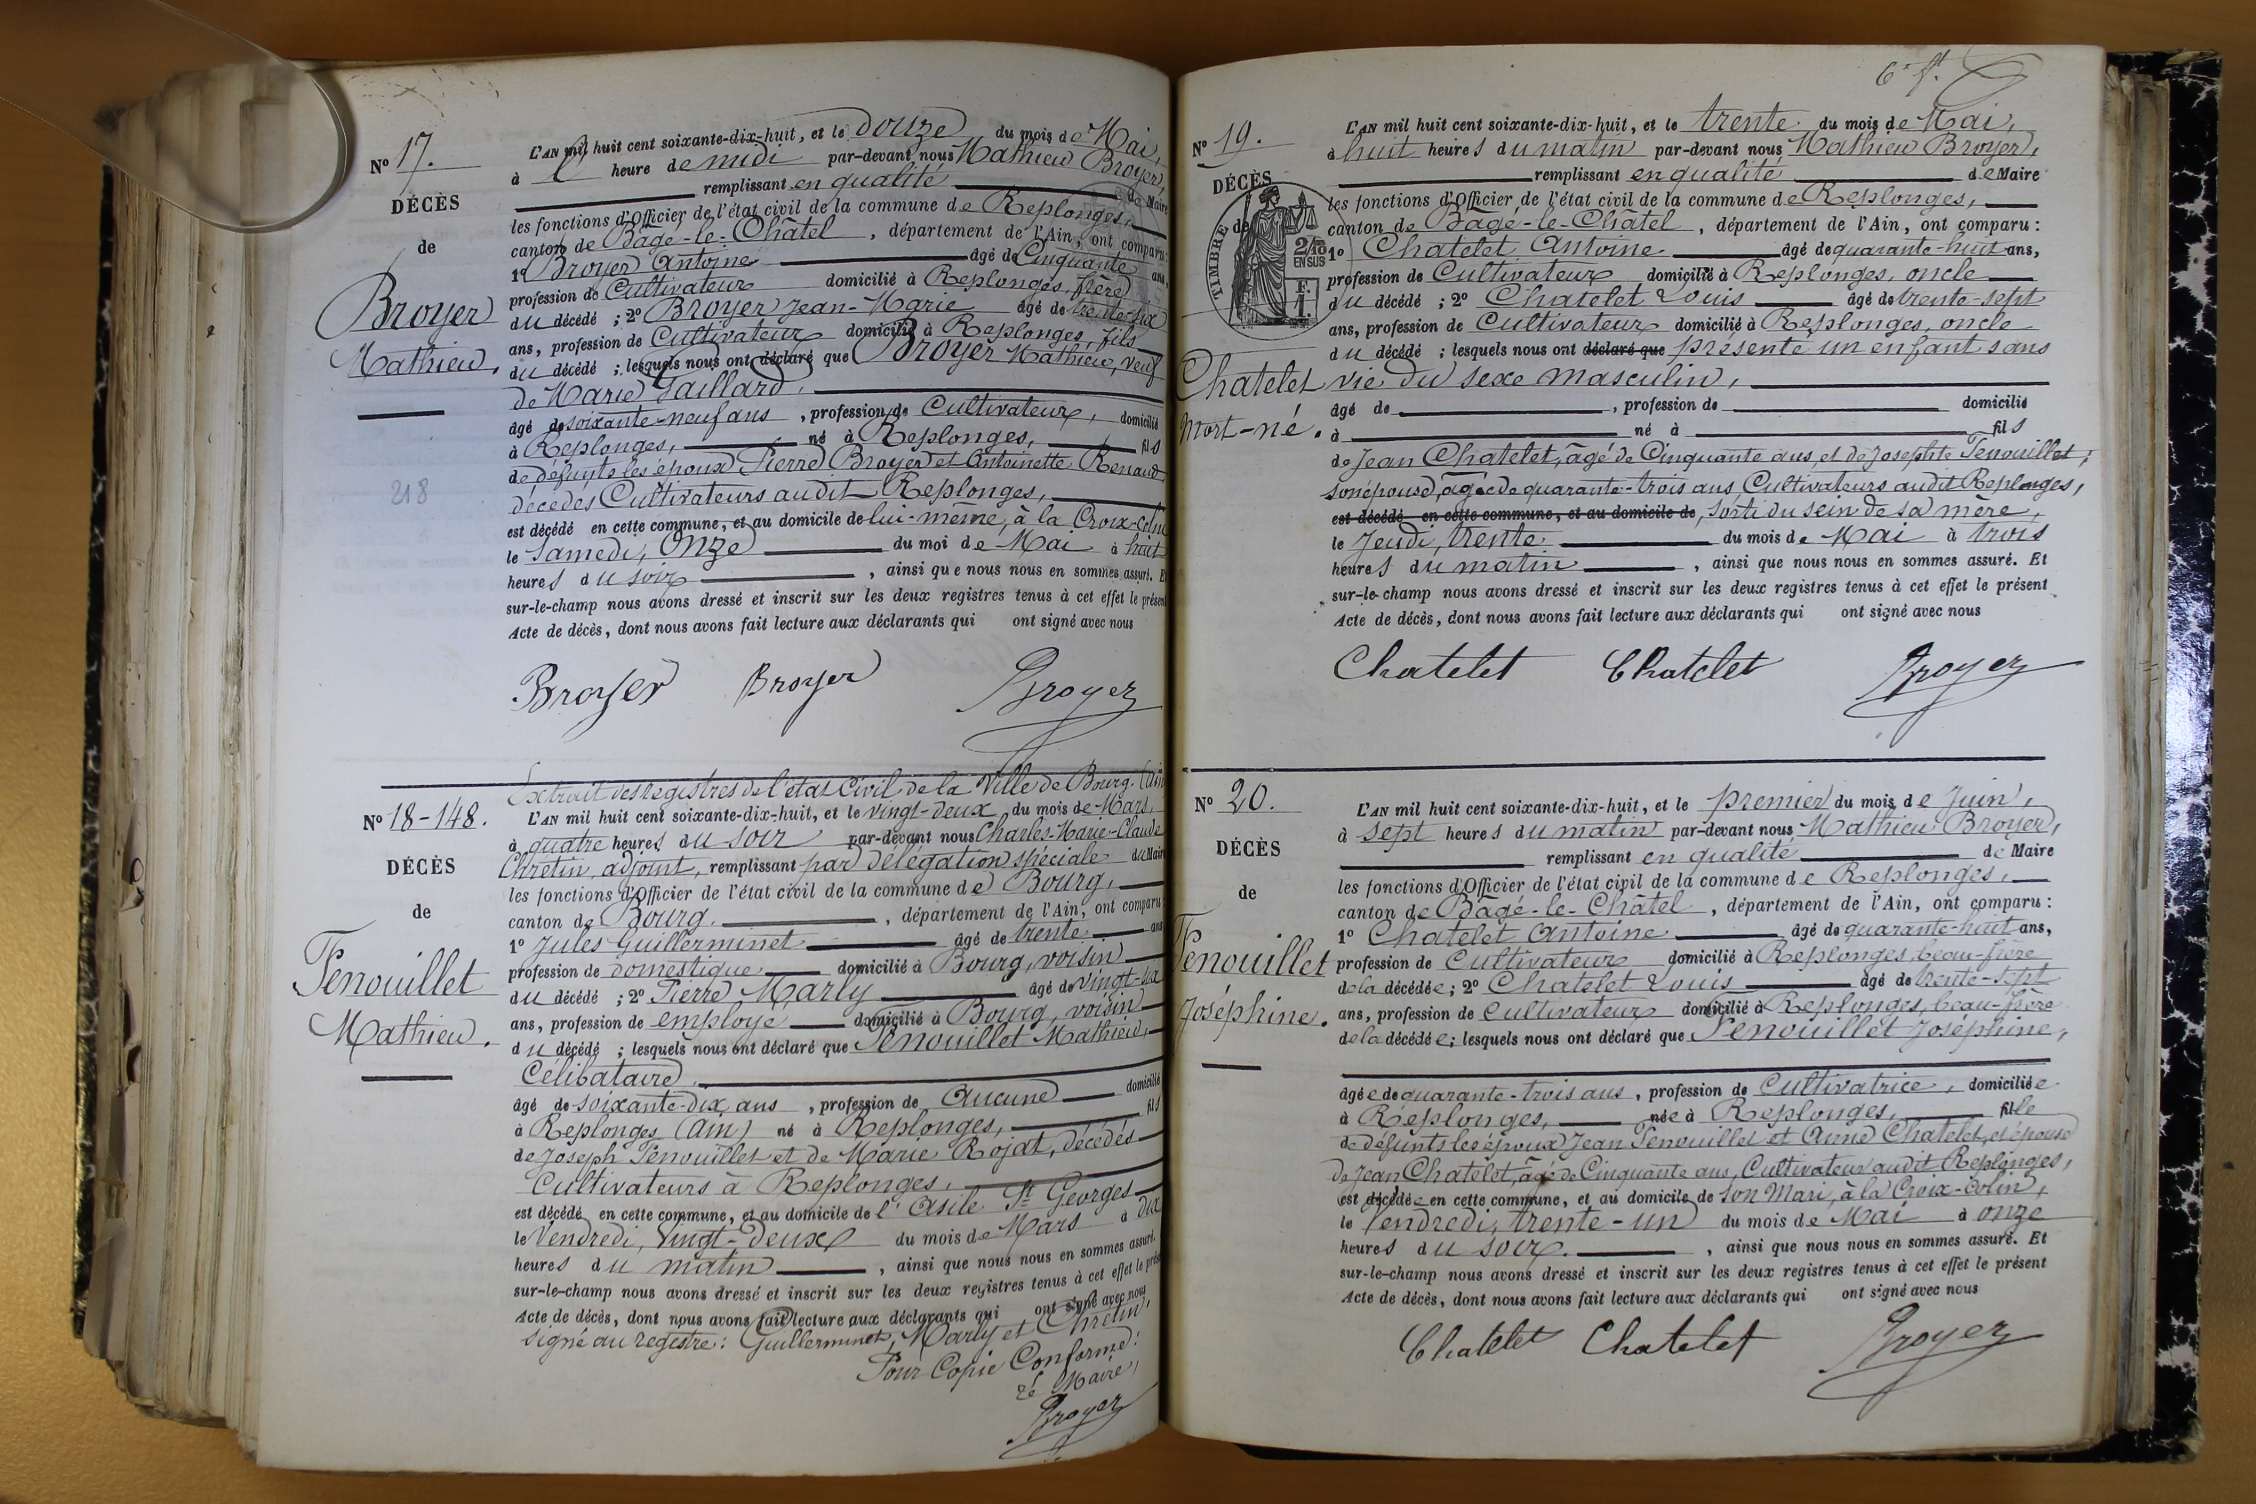 N° 17.
DÉCÈS
de
Broyer
Mathieu.
218
L'AN mil huit cent soixante-dix-huit, et le douze du mois de Mai,
à heure de midi par-devant nous Mathieu Broyer,
remplissant en qualité de Maire
les fonctions d'Officier de l'état civil de la commune de Replonges,
canton de Bâgé-le-Châtel, département de l'Ain, ont comparu:
1° Broyer Antoine âgé de Cinquante ans,
profession de Cultivateur domicilié à Replonges, frère
du décédé ; 2° Broyer Jean-Marie âgé de trente-six
ans, profession de Cultivateur domicilié à Replonges, fils
du décédé ; lesquels nous ont déclaré que Broyer Mathieu, veuf
de Marie Gaillard,
âgé de soixante-neuf ans, profession de Cultivateur, domicilié
à Replonges, né à Replonges, fils
de défunts les époux Pierre Broyer et Antoinette Renaud
décédés Cultivateurs audit Replonges,
est décédé en cette commune, et au domicile de lui-même, à la Croix-Colin
le Samedi, Onze du moi de Mai à huit
heures du soir, ainsi que nous nous en sommes assuré. Et
sur-le-champ nous avons dressé et inscrit sur les deux registres tenus à cet effet le présent
Acte de décès, dont nous avons fait lecture aux déclarants qui ont signé avec nous
Broyer Broyer Broyer
N° 18-148.
DÉCÈS
de
Fenouillet
Mathieu.
Extrait des registres de l'état Civil de la Ville de Bourg. (Ain
L'AN mil huit cent soixante-dix-huit, et le vingt-deux du mois de Mars,
à quatre heures du soir par-devant nous Charles-Marie-Claude
Chrétin, adjoint, remplissant par délégation spéciale du Maire
les fonctions d'Officier de l'état civil de la commune de Bourg,
canton de Bourg, département de l'Ain, ont comparu:
1° Jules Guillerminet âgé de trente ans
profession de domestique domicilié à Bourg, voisin
du décédé ; 2° Pierre Marly âgé de vingt-six
ans, profession de employé domicilié à Bourg, voisin
du décédé ; lesquels nous ont déclaré que Fenouillet Mathieu,
Célibataire,
âgé de soixante-dix ans, profession de Aucune domicilié
à Replonges (Ain) né à Replonges, fils
de Joseph Fenouillet et de Marie Rojat, décédés
Cultivateurs à Replonges,
est décédé en cette commune, et au domicile de l'Asile St Georges
le Vendredi, vingt-deux du mois de Mars à dix
heures du matin, ainsi que nous nous en sommes assuré.
sur-le-champ nous avons dressé et inscrit sur les deux registres tenus à cet effet le présent
Acte de décès, dont nous avons fait lecture aux déclarants qui ont signé avec nous
Signé au registre: Guillerminet, Marly et Chrétin,
Pour Copie Conforme:
Le Maire,
Broyer
6e ft.
N° 19.
DÉCÈS
de
TIMBRE
2/10
EN SUS
F.
1.
Chatelet
Mort-né.
L'AN mil huit cent soixante-dix-huit, et le trente du mois de Mai,
à huit heures du matin par-devant nous Mathieu Broyer,
remplissant en qualité de Maire
les fonctions d'Officier de l'état civil de la commune de Replonges,
canton de Bâgé-le-Châtel, département de l'Ain, ont comparu:
1° Chatelet Antoine âgé de quarante-huit ans,
profession de Cultivateur domicilié à Replonges, oncle
du décédé ; 2° Chatelet Louis âgé de trente-sept
ans, profession de Cultivateur domicilié à Replonges, oncle
du décédé ; lesquels nous ont déclaré que présenté un enfant sans
vie du sexe masculin,
âgé de , profession de domicilié
à né à fils
de Jean Chatelet, âgé de Cinquante ans, et de Josephte Fenouillet,
son épouse, âgée de quarante-trois ans, Cultivateurs audit Replonges,
est décédé en cette commune, et au domicile de, sorti du sein de sa mère,
le Jeudi, trente du mois de Mai à trois
heures du matin, ainsi que nous nous en sommes assuré. Et
sur-le-champ nous avons dressé et inscrit sur les deux registres tenus à cet effet le présent
Acte de décès, dont nous avons fait lecture aux déclarants qui ont signé avec nous
Chatelet Chatelet Broyer
N° 20.
DÉCÈS
de
Fenouillet
Joséphine.
L'AN mil huit cent soixante-dix-huit, et le premier du mois de Juin,
à sept heures du matin par-devant nous Mathieu Broyer,
remplissant en qualité de Maire
les fonctions d'Officier de l'état civil de la commune de Replonges,
canton de Bâgé-le-Châtel, département de l'Ain, ont comparu:
1° Chatelet Antoine âgé de quarante-huit ans,
profession de Cultivateur domicilié à Replonges, beau-frère
de la décédée ; 2° Chatelet Louis âgé de trente-sept
ans, profession de Cultivateur domicilié à Replonges, beau-frère
de la décédée ; lesquels nous ont déclaré que Fenouillet Joséphine,
âgée de quarante-trois ans, profession de Cultivatrice, domiciliée
à Replonges, née à Replonges, fille
de défunts les époux Jean Fenouillet et Anne Chatelet, et épouse
de Jean Chatelet, âgé de Cinquante ans, Cultivateur audit Replonges,
est décédée en cette commune, et au domicile de son Mari, à la Croix-Colin,
le Vendredi, trente-un du mois de Mai à onze
heures du soir, ainsi que nous nous en sommes assuré. Et
sur-le-champ nous avons dressé et inscrit sur les deux registres tenus à cet effet le présent
Acte de décès, dont nous avons fait lecture aux déclarants qui ont signé avec nous
Chatelet Chatelet Broyer